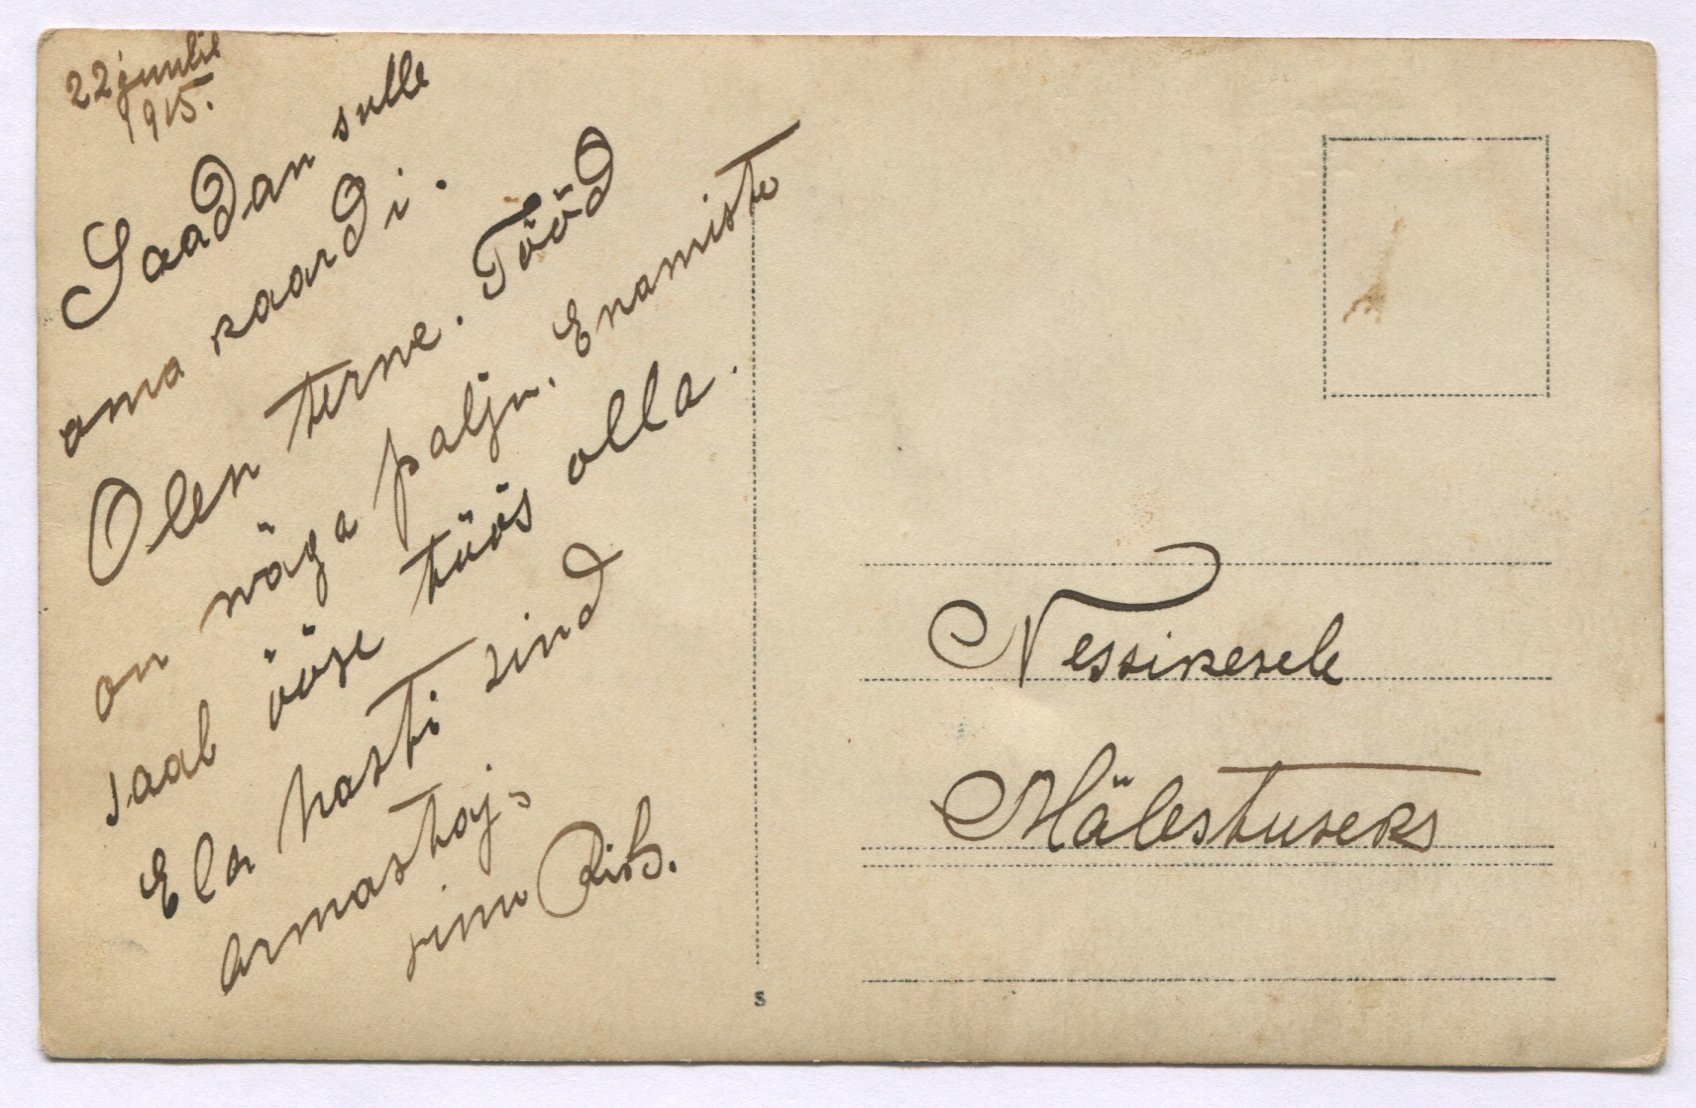 22 juulil
1915.
Saadan sulle
oma kaardi.
Olen terwe. Tööd
on wäga palju. Enamiste
saab ööse töös olla.
Ela hasti sind
armastaj.
sinu Rits.
Nessikesele
Mälestuseks
S